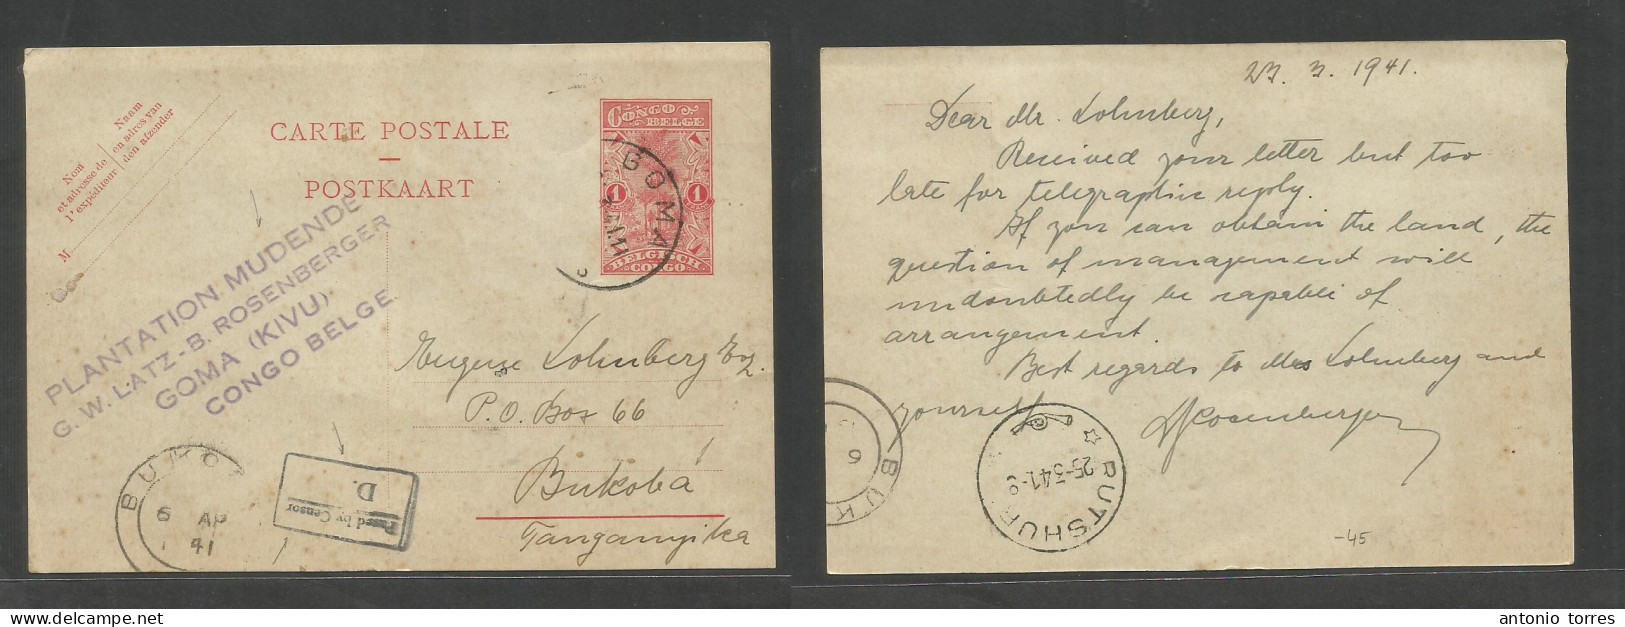 Nom
et adresse de
l'expéditeur
Naam
en adres van
den afzender
M
CARTE POSTALE
POSTKAART
CONGO
BELGE
1 1
BELGISCH
CONGO
GOMA
PLANTATION MUDENDE
G. W. LATZ - B. ROSENBERGER
GOMA (KIVU)
CONGO BELGE
Eugene Lohmberg Esq.
P.O. Box 66
Bukoba
Tanganyika
BUKO
6 AP
41
Passed by Censor
D.
23. 3. 1941.
Dear Mr. Lohmberg,
Received your letter but too
late for telegraphic reply.
If you can obtain the land, the
question of management will
undoubtedly be capable of
arrangement.
Best regards to Mrs Lohmberg and
yourself
BRosenberger
BUK
6
RUTSHUR
25-3-41-9
-45
antonio torres